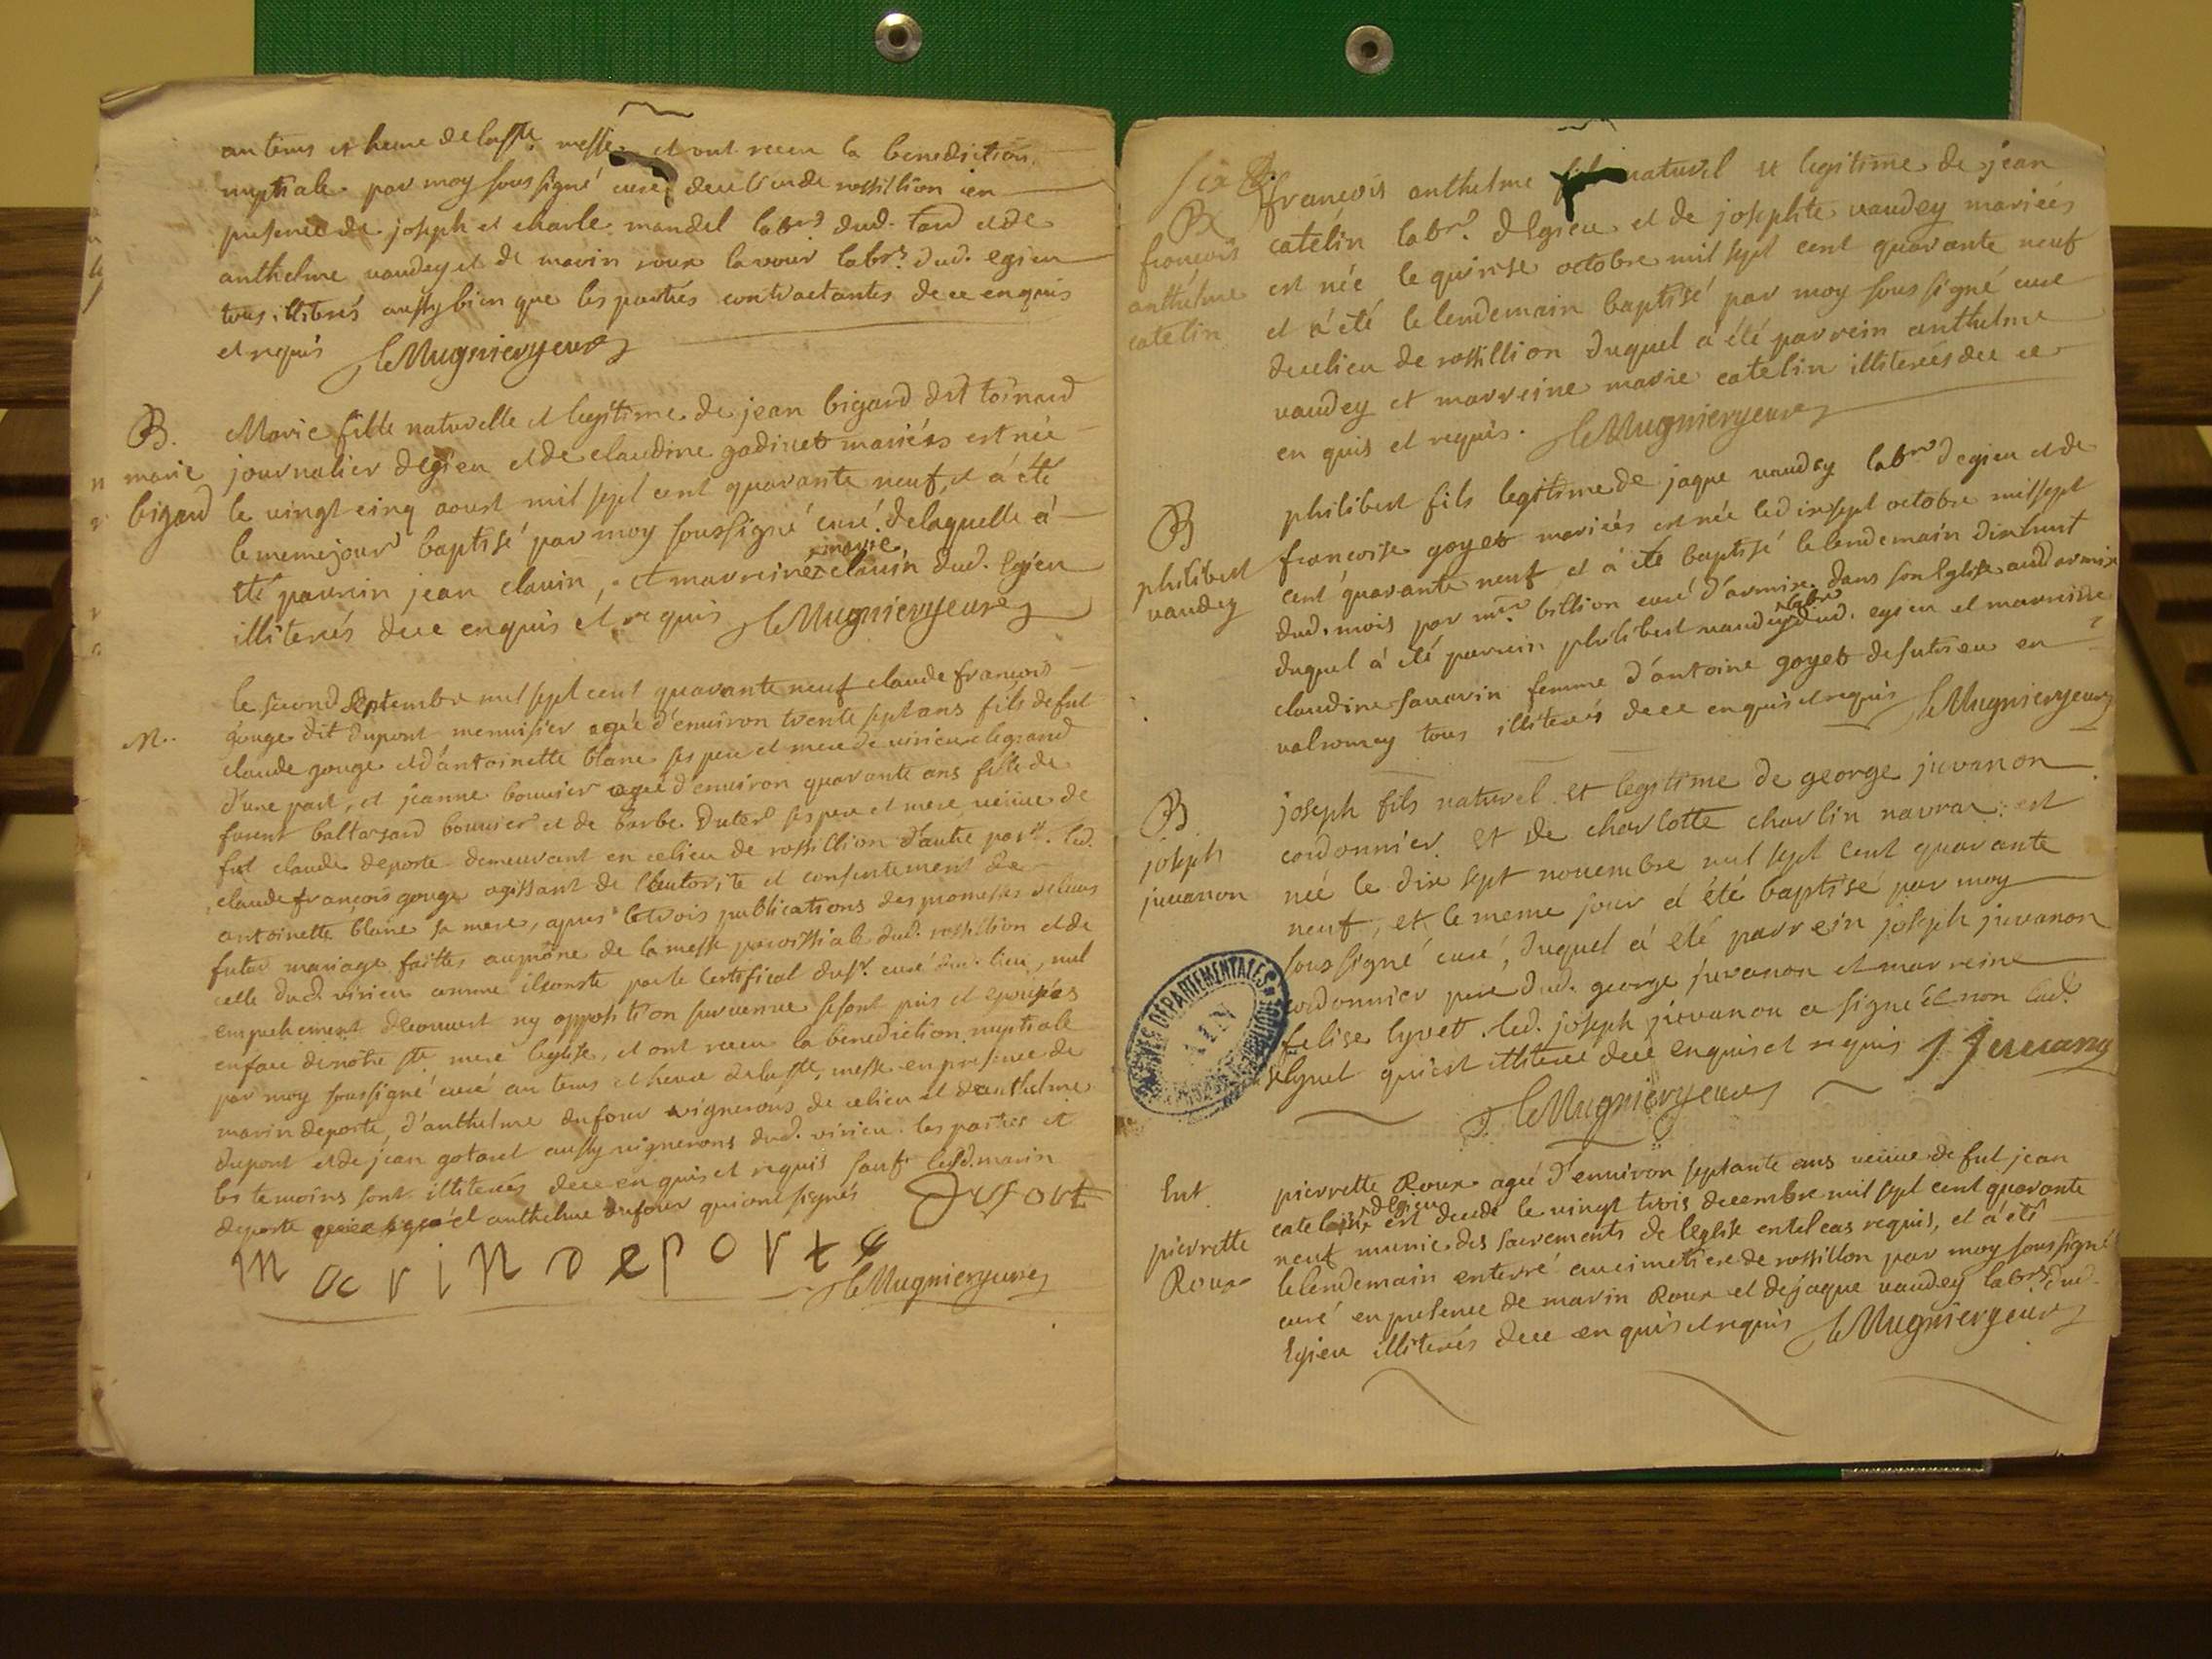 au tems et heure de la ste. messe et ont receu la benediction
nuptiale par moy soussigné curé de ce lieu de rossillion en
presence de joseph et charle mandel labrs dud. tard et de
anthelme vaudey et de marin roux lavoir labrs. dud. egieu
tous illiterés aussy bien que les partiés contractantes de ce enquis
et requis LeMugnieryeure
B. Marie fille naturelle et legitime de jean bigard dit toinard
marie journalier degieu et de claudine gadinet mariées est née
bigard le vingt cinq aoust mil sept cent quarante neuf, et a été
le meme jour baptisé par moy soussigné curé. de laquelle a
été parrein jean clavin, et marreine marie clavin dud. Egieu
illiterés de ce enquis et requis LeMugnieryeure
le second septembre mil sept cent quarante neuf claude françois
M. gouge dit dupont menuisier agée d'environ trente sept ans fils de fut
claude gouge et d'antoinette blanc ses pere et mere de virieu le grand
d'une part, et jeanne bouvier agée d'environ quarante ans fille de
furent baltazard bouvier et de barbe duter ses pere et mere veuve de
fut claude deporte demeurant en ce lieu de rossillion d'autre part. led.
claude françois gouge agissant de l'autorité et consentement de
antoinette blanc sa mere, apres les trois publications des promesses de leurs
futur mariage faittes au prône de la messe paroissiale dud. rossillion et de
celle dud. virieu comme il conste par le certificat du sr. curé dud. lieu, nul
empechement decouvert ny opposition survenue se sont pris et epousés
en face de notre ste. mere l'eglise, et ont receu la benediction nuptiale
par moy soussigné curé au tems et heure de la ste. messe en presence de
marin deporte, d'anthelme dufour vignerons de ce lieu et d'anthelme
dupont et de jean gotaret aussy vignerons dud. virieu. les parties et
les temoins sont illiterés de ce enquis et requis sauf led. marin
deporte et anthelme dufour qui ont signés Dufour
marin deporte
LeMugnieryeure
six
B françois anthelme fils naturel et legitime de jean
françois catelin labr. dEgieu et de josephte vaudey mariées
anthelme est née le quinse octobre mil sept cent quarante neuf
catelin et a été le lendemain baptisé par moy soussigné curé
de ce lieu de rossillion duquel a été parrein anthelme
vaudey et marreine marie catelin illiterés de ce
en quis et requis. LeMugnieryeure
B philibert fils legitime de jaque vaudey labr degieu et de
philibert françoise goyet mariées est née le dix sept octobre mil sept
vaudey cent quarante neuf et a été baptisé le lendemain dix huit
dud. mois par mre. billion curé d'armix dans son Eglise aud armix
duquel a été parrein philibert vaudey labr dud. egieu et marreine
claudine savarin femme d'antoine goyet de sutrieu en
valromey tous illiterés de ce enquis et requis LeMugnieryeure
B joseph fils naturel et legitime de george juvanon
joseph cordonnier et de charlotte charlin navraz est
juvanon née le dix sept novembre mil sept cent quarante
neuf, et le meme jour a été baptisé par moy
soussigné curé, duquel a été parrein joseph juvanon
cordonnier pere dud. george juvanon et marreine
felise lyvet led. joseph juvanon a signé et non lad.
lyvet qui est illiteré de ce enquis et requis J Juvanon
LeMugnieryeure
ARCHIVES DÉPARTEMENTALES
AIN
Ent pierrette Roux agée d'environ septante ans veuve de fut jean
pierrette catelin degieu est decedé le vingt trois decembre mil sept cent quarante
Roux neuf munie des sacrements de l'eglise en tel cas requis, et a été
le lendemain enterré au cimetiere de rossillon par moy soussigné
curé en presence de marin Roux et de jaque vaudey labrs dud.
Egieu illiterés de ce en quis et requis LeMugnieryeure